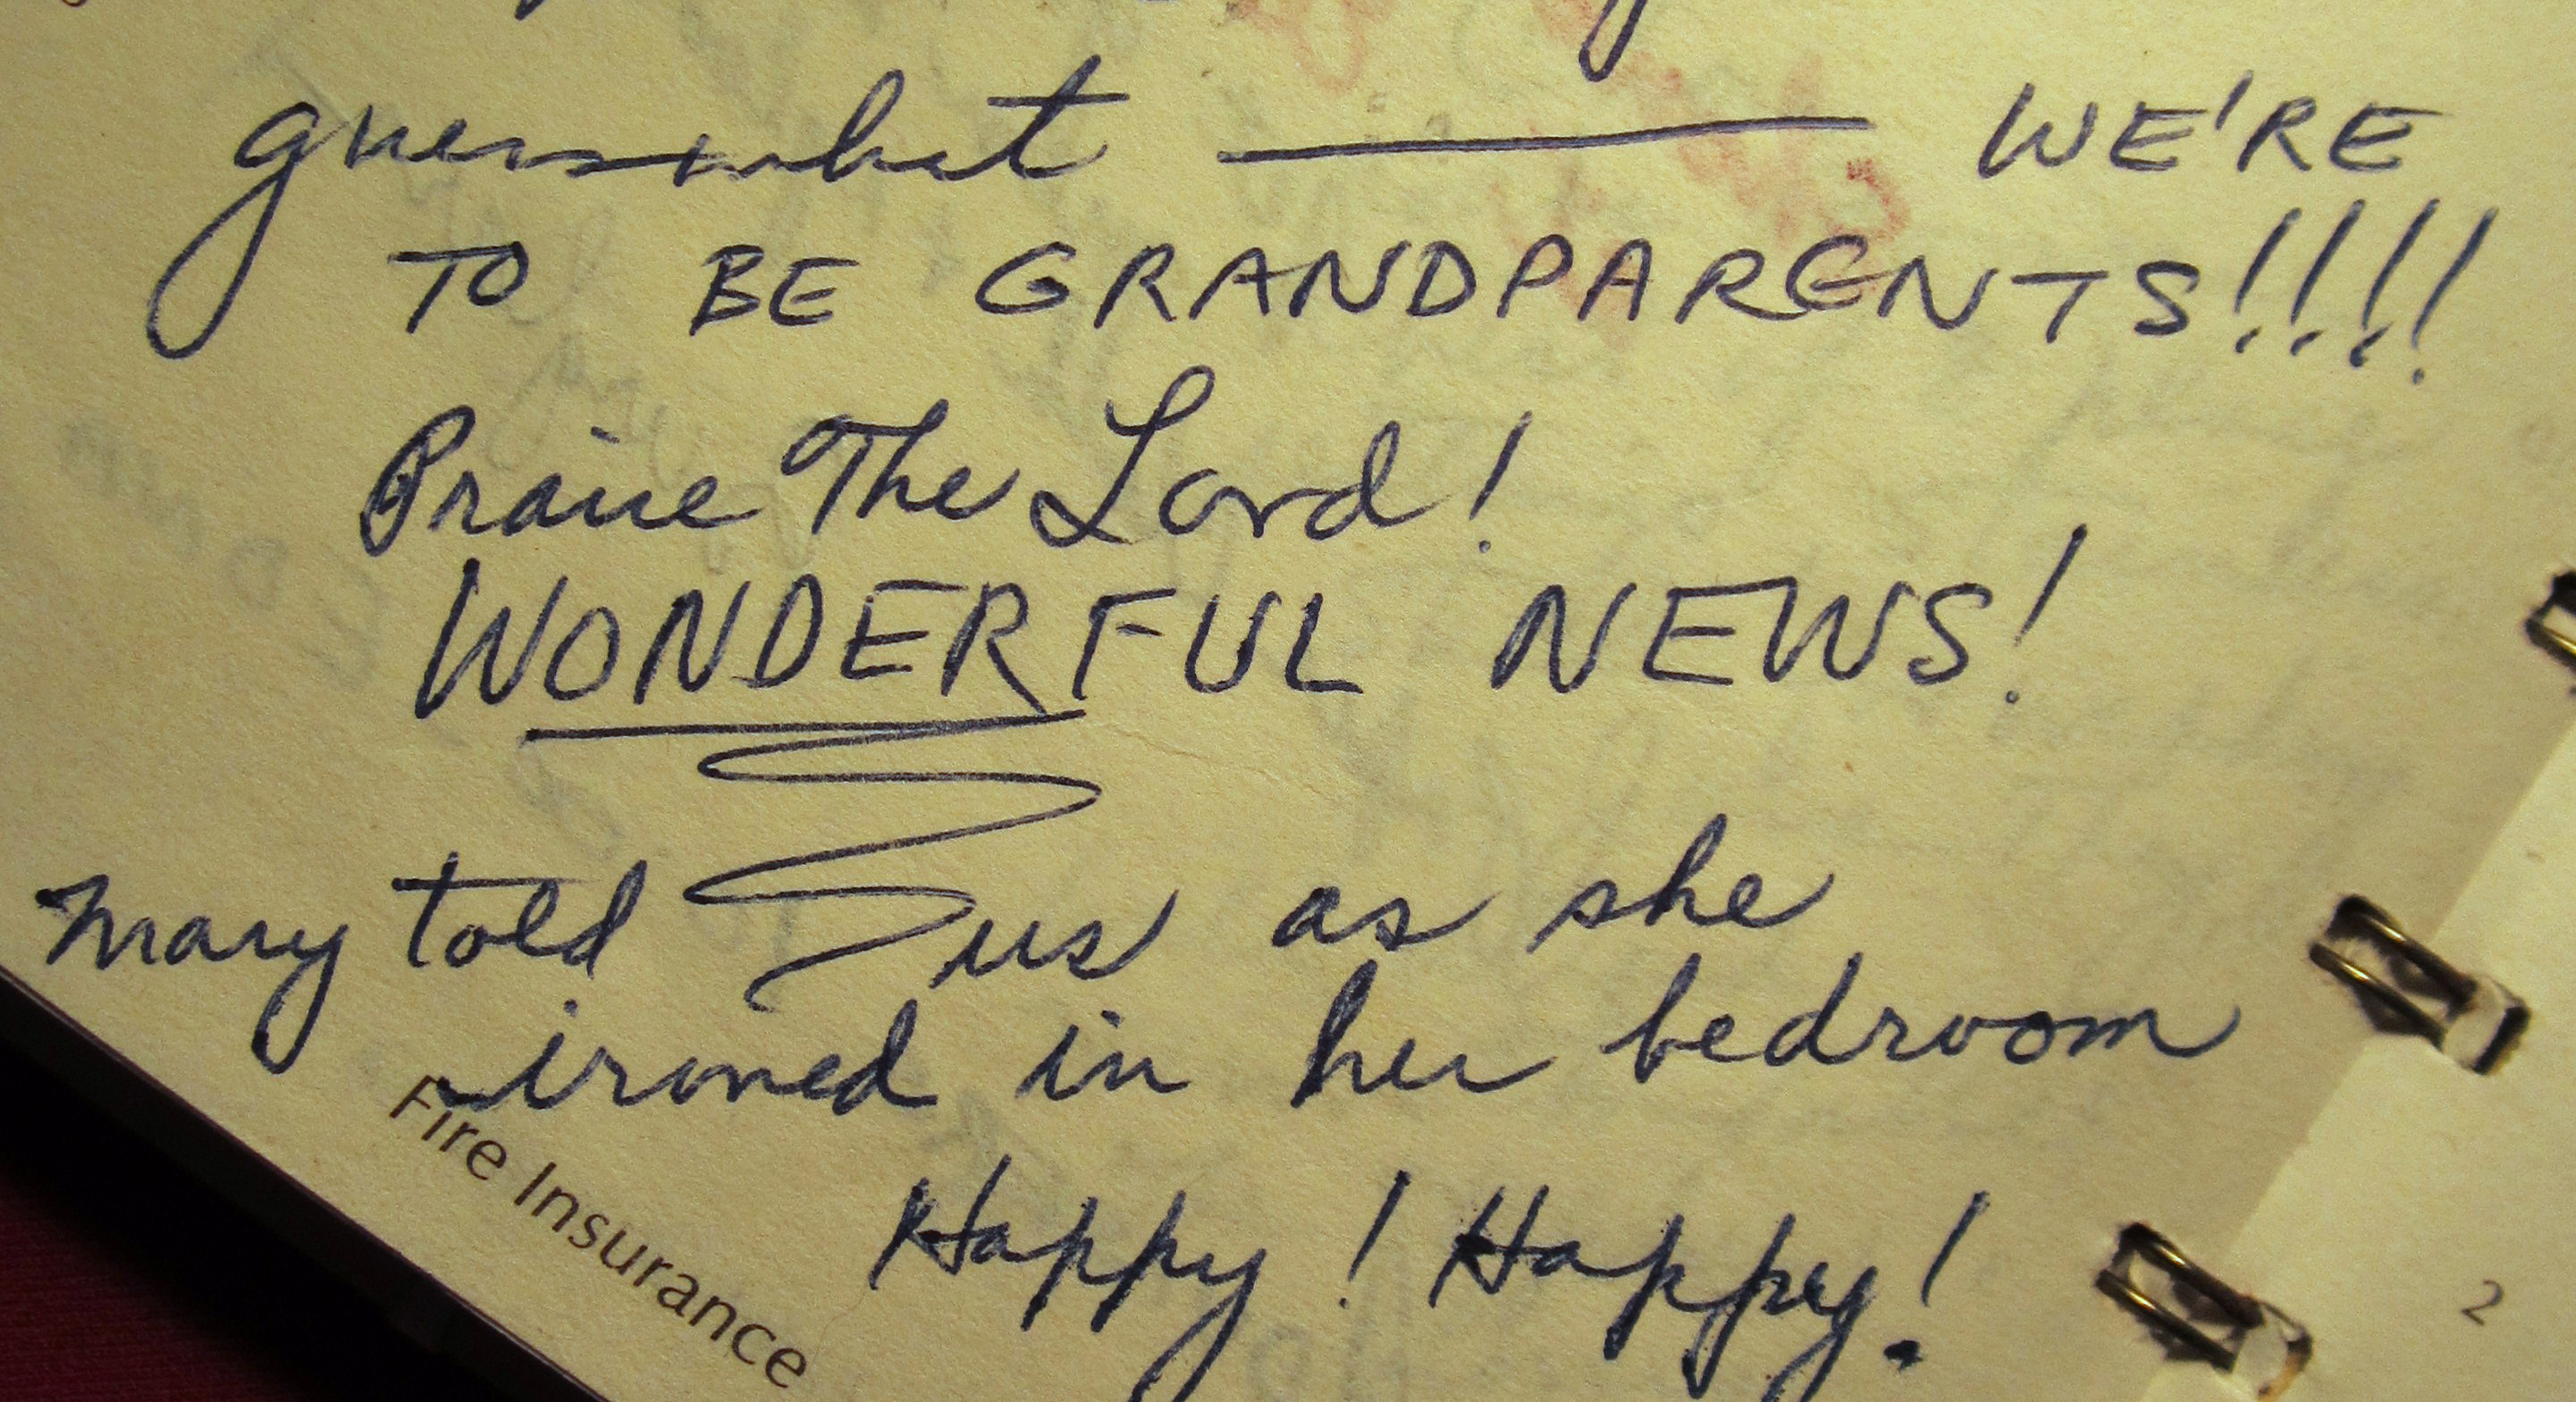 guess what — WE'RE
TO BE GRANDPARENTS!!!!
Praise The Lord!
WONDERFUL NEWS!
Mary told us as she
ironed in her bedroom
Happy! Happy!
Fire Insurance
2